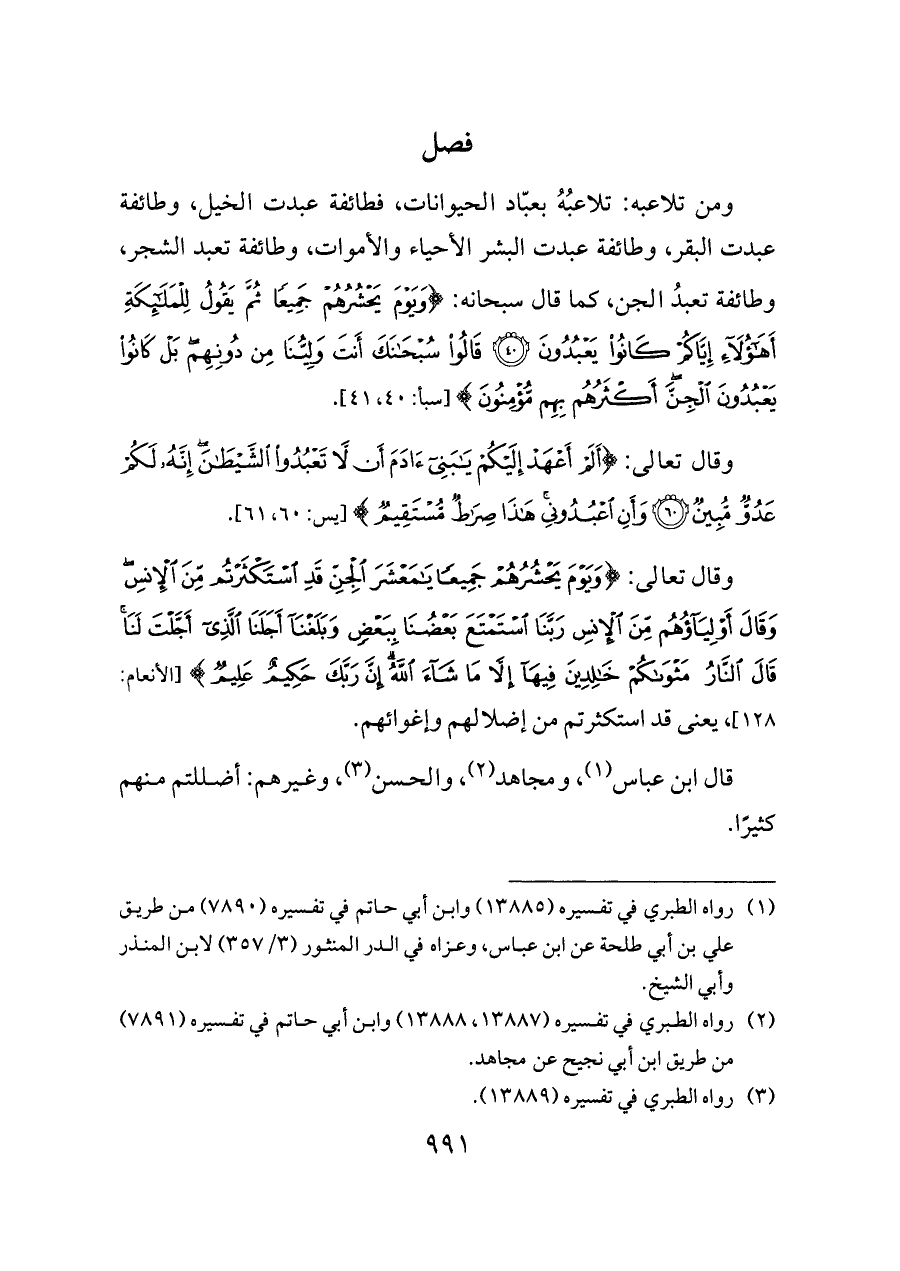 فصل
ومن تلاعبه: تلاعبُهُ بعبّاد الحيوانات، فطائفة عبدت الخيل، وطائفة
عبدت البقر، وطائفة عبدت البشر الأحياء والأموات، وطائفة تعبد الشجر،
وطائفة تعبدُ الجن، كما قال سبحانه: ﴿وَيَوْمَ يَحْشُرُهُمْ جَمِيعًا ثُمَّ يَقُولُ لِلْمَلَٰٓئِكَةِ
أَهَٰٓؤُلَآءِ إِيَّاكُمْ كَانُوا۟ يَعْبُدُونَ ٤٠ قَالُوا۟ سُبْحَٰنَكَ أَنتَ وَلِيُّنَا مِن دُونِهِمۖ بَلْ كَانُوا۟
يَعْبُدُونَ ٱلْجِنَّۖ أَكْثَرُهُم بِهِم مُّؤْمِنُونَ﴾ [سبأ: ٤٠، ٤١].
وقال تعالى: ﴿أَلَمْ أَعْهَدْ إِلَيْكُمْ يَٰبَنِىٓ ءَادَمَ أَن لَّا تَعْبُدُوا۟ ٱلشَّيْطَٰنَۖ إِنَّهُۥ لَكُمْ
عَدُوٌّ مُّبِينٌ ٦٠ وَأَنِ ٱعْبُدُونِىۚ هَٰذَا صِرَٰطٌ مُّسْتَقِيمٌ﴾ [يس: ٦٠، ٦١].
وقال تعالى: ﴿وَيَوْمَ يَحْشُرُهُمْ جَمِيعًا يَٰمَعْشَرَ ٱلْجِنِّ قَدِ ٱسْتَكْثَرْتُم مِّنَ ٱلْإِنسِۖ
وَقَالَ أَوْلِيَآؤُهُم مِّنَ ٱلْإِنسِ رَبَّنَا ٱسْتَمْتَعَ بَعْضُنَا بِبَعْضٍ وَبَلَغْنَآ أَجَلَنَا ٱلَّذِىٓ أَجَّلْتَ لَنَاۚ
قَالَ ٱلنَّارُ مَثْوَىٰكُمْ خَٰلِدِينَ فِيهَآ إِلَّا مَا شَآءَ ٱللَّهُۗ إِنَّ رَبَّكَ حَكِيمٌ عَلِيمٌ﴾ [الأنعام:
١٢٨]، يعنى قد استكثرتم من إضلالهم وإغوائهم.
قال ابن عباس(١)، ومجاهد(٢)، والحسن(٣)، وغيرهم: أضللتم منهم
كثيرًا.
(١) رواه الطبري في تفسيره (١٣٨٨٥) وابن أبي حاتم في تفسيره (٧٨٩٠) من طريق
علي بن أبي طلحة عن ابن عباس، وعزاه في الدر المنثور (٣/ ٣٥٧) لابن المنذر
وأبي الشيخ.
(٢) رواه الطبري في تفسيره (١٣٨٨٧، ١٣٨٨٨) وابن أبي حاتم في تفسيره (٧٨٩١)
من طريق ابن أبي نجيح عن مجاهد.
(٣) رواه الطبري في تفسيره (١٣٨٨٩).
٩٩١